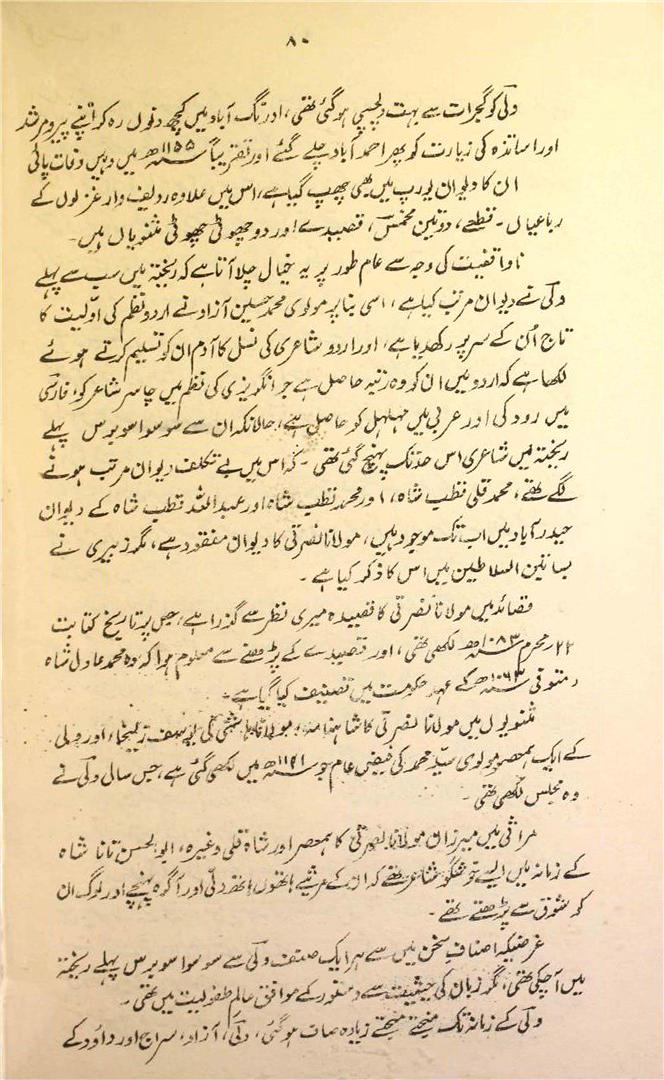 ۸۰
ولیؔ کو گجرات سے بہت دلچسپی ہوگئی تھی، اورنگ آباد میں کچھ دنوں رہ کر اپنے پیر و مرشد
اور اساتذہ کی زیارت کو پھر احمد آباد چلے گئے اور تقریباً ۱۱۵۵ھ میں وہیں وفات پائی
ان کا دیوان یورپ میں بھی چھپ گیا ہے، اس میں علاوہ ردیف وار غزلوں کے
رباعیاں۔ قطعے، دو تین مخمس، قصیدے اور دو چھوٹی چھوٹی مثنویاں ہیں۔
ناواقفیت کی وجہ سے عام طور پر یہ خیال چلا آتا ہے کہ ریختہ میں سب سے پہلے
ولیؔ نے دیوان مرتب کیا ہے، اسی بنا پر مولوی محمد حسین آزاد نے اردو نظم کی اوّلیت کا
تاج اُن کے سر پر رکھدیا ہے، اور اردو شاعری کی نسل کا آدم ان کو تسلیم کرتے ہوئے
لکھا ہے کہ اردو میں ان کو وہ رتبہ حاصل ہے جو انگریزی کی نظم میں چاسر شاعر کو، فارسی
میں رودکی اور عربی میں مہلہل کو حاصل ہے، حالانکہ ان سے سو سوا سو برس پہلے
ریختہ میں شاعری اس حد تک پہنچ گئی تھی۔ کہ اس میں بے تکلف دیوان مرتب ہونے
لگے تھے، محمد قلی قطب شاہ، اور محمد قطب شاہ اور عبداللہ قطب شاہ کے دیوان
حیدرآباد میں اب تک موجود ہیں، مولانا نصرتی کا دیوان مفقود ہے، مگر زبیری نے
بساتین السلاطین میں اس کا ذکر کیا ہے۔
قصائد میں مولانا نصرتی کا قصیدہ میری نظر سے گذرا ہے، جس پر تاریخ کتابت
۲۲ محرم ۱۰۸۳ھ لکھی تھی، اور قصیدے کے پڑھنے سے معلوم ہوا کہ وہ محمد عادل شاہ
متوفی ۱۰۶۳ھ کے عہد حکومت میں تصنیف کیا گیا ہے۔
مثنویوں میں مولانا نصرتی کا شاہنامہ، مولانا ہاشمی کی یوسف زلیخا، اور ولی
کے ایک ہمعصر مولوی سید محمد کی فیض عام جو ۱۱۴۱ھ میں لکھی گئی ہے، جس سال ولیؔ نے
وہ مجلس لکھی تھی۔
مراثی میں میرزا، مولانا نصرتی کا ہمعصر اور شاہ قلی وغیرہ، ابوالحسن تانا شاہ
کے زمانہ میں ایسے خوشگو شاعر تھے کہ ان کے مرثیے ہاتھوں ہاتھ دلّی اور آگرہ پہنچے اور لوگ ان
کو شوق سے پڑھتے تھے۔
غرضیکہ اصناف سخن میں سے ہر ایک صنف ولیؔ سے سو سوا سو برس پہلے ریختہ
میں آچکی تھی، مگر زبان کی حیثیت سے دستور کے موافق عالم طفولیت میں تھی۔
ولیؔ کے زمانہ تک منجھتے منجھتے زیادہ صاف ہوگئی، ولیؔ، آزاد، سراج اور داؤد کے